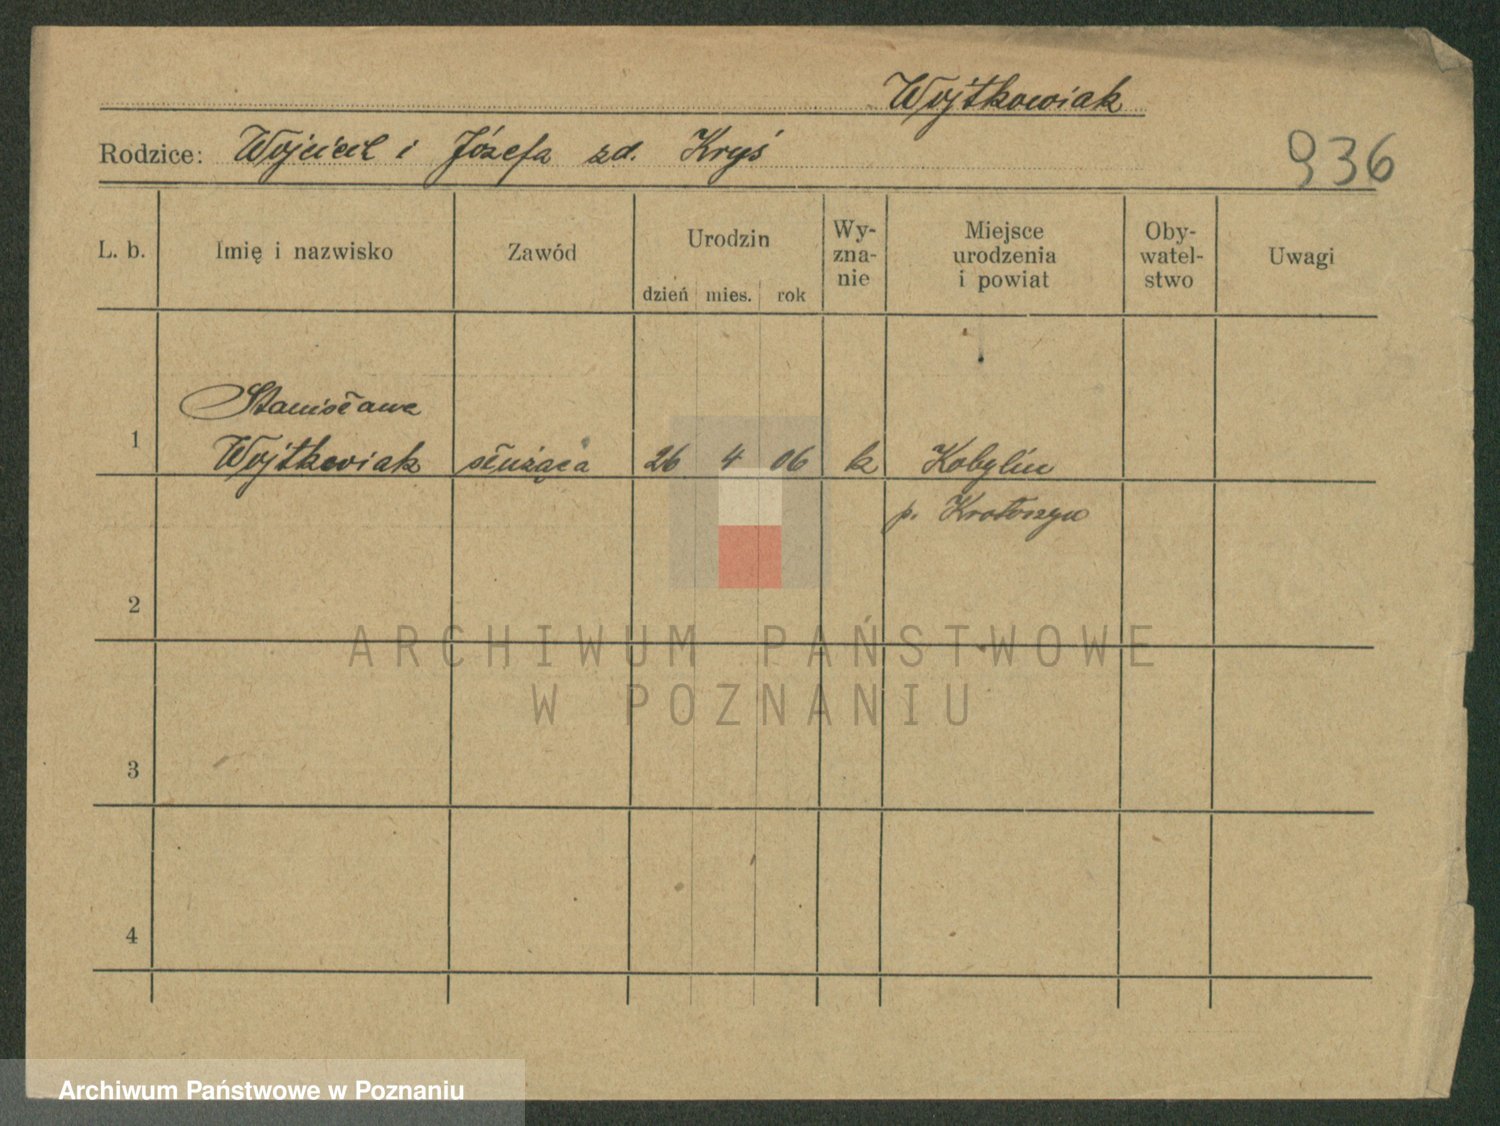 Wojtkowiak
Rodzice: Wojciech i Józefa zd. Kryś
936
L. b. Imię i nazwisko Zawód Urodzin dzień mies. rok Wy-
zna-
nie Miejsce
urodzenia
i powiat Oby-
watel-
stwo Uwagi
Stanisława
1 Wojtkowiak służąca 26 4 06 k Kobylin
p. Krotoszyn
2
ARCHIWUM PAŃSTWOWE
W POZNANIU
3
4
Archiwum Państwowe w Poznaniu